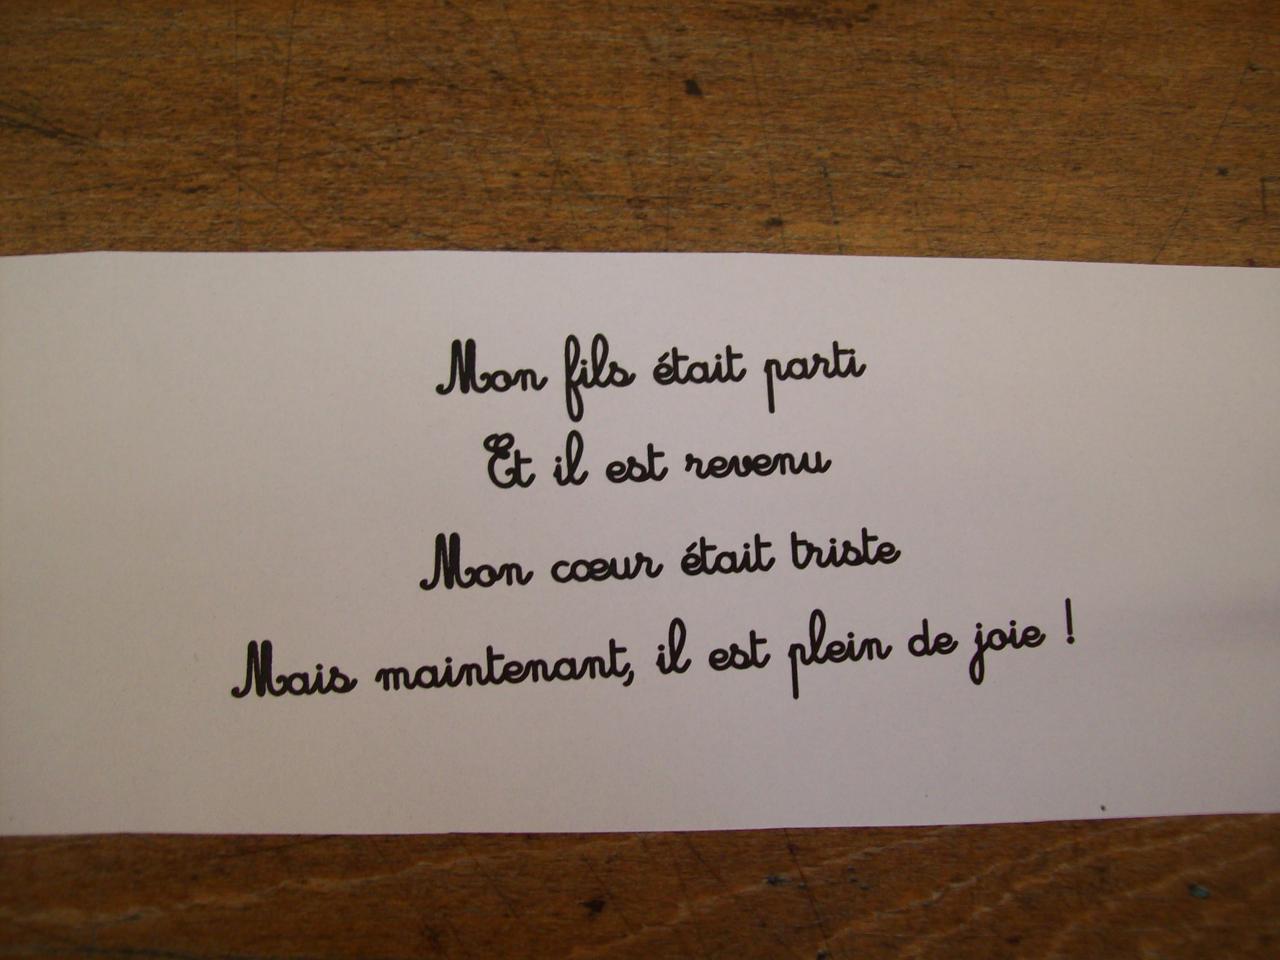 Mon fils était parti
Et il est revenu
Mon cœur était triste
Mais maintenant, il est plein de joie !